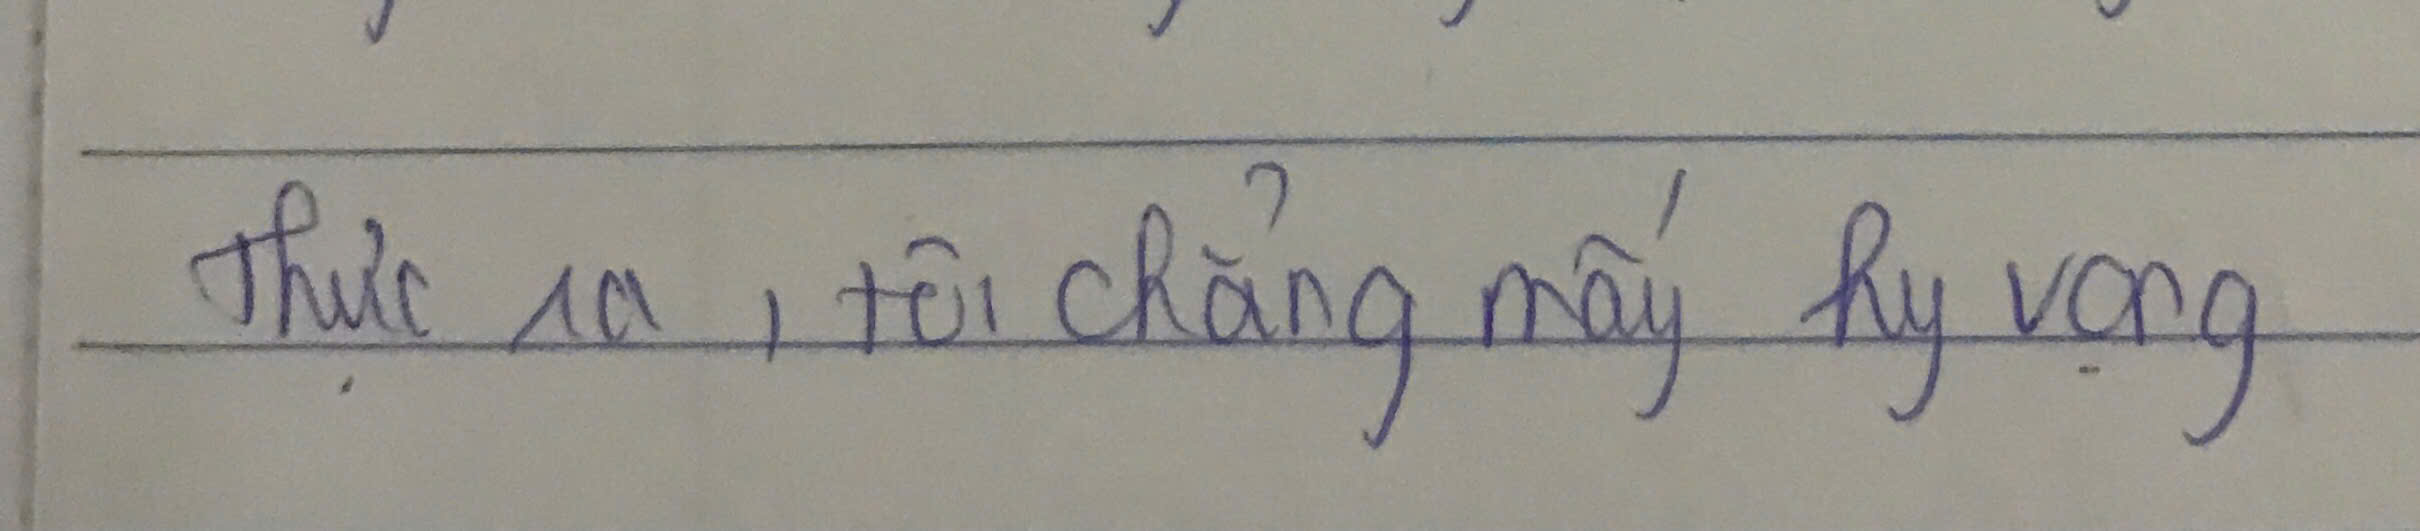 Thực ra, tôi chẳng mấy hy vọng